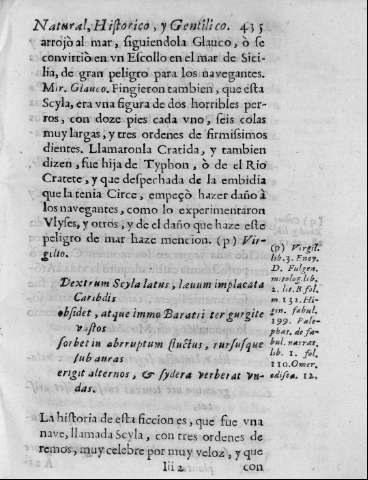 Natural, Historico, y Gentilico. 435
arrojò al mar, siguiendola Glauco, ò se
convirtiò en vn Escollo en el mar de Sici-
lia, de gran peligro para los navegantes.
Mir. Glauco. Fingieron tambien, que esta
Scyla, era vna figura de dos horribles per-
ros, con doze pies cada vno, seis colas
muy largas, y tres ordenes de firmissimos
dientes. Llamaronla Cratida, y tambien
dizen, fue hija de Typhon, ò de el Rio
Cratete, y que despechada de la embidia
que la tenia Circe, empeçò hazer daño à
los navegantes, como lo experimentaron
Vlyses, y otros, y de el daño que haze este
peligro de mar haze mencion. (p) Vir-
gilio.
Dextrum Scyla latus, lævum implacata
Caribdis
obsidet, atque imo Baratri ter gurgite
vastos
sorbet in abrruptum fluctus, rursusque
sub auras
erigit alternos, & sydera verberat vn-
das.
La historia de esta ficcion es, que fue vna
nave, llamada Scyla, con tres ordenes de
remos, muy celebre por muy veloz, y que
Iii 2 con
(p) Virgil.
lib. 3. Eney.
D. Fulgen.
m:tolog. lib.
2. lit. B fol.
m. 131. Hi-
gin. fabul.
199. Pale-
phat. de fa-
bul. narrat.
lib. 1. fol.
110. Omer.
odisea. 12.